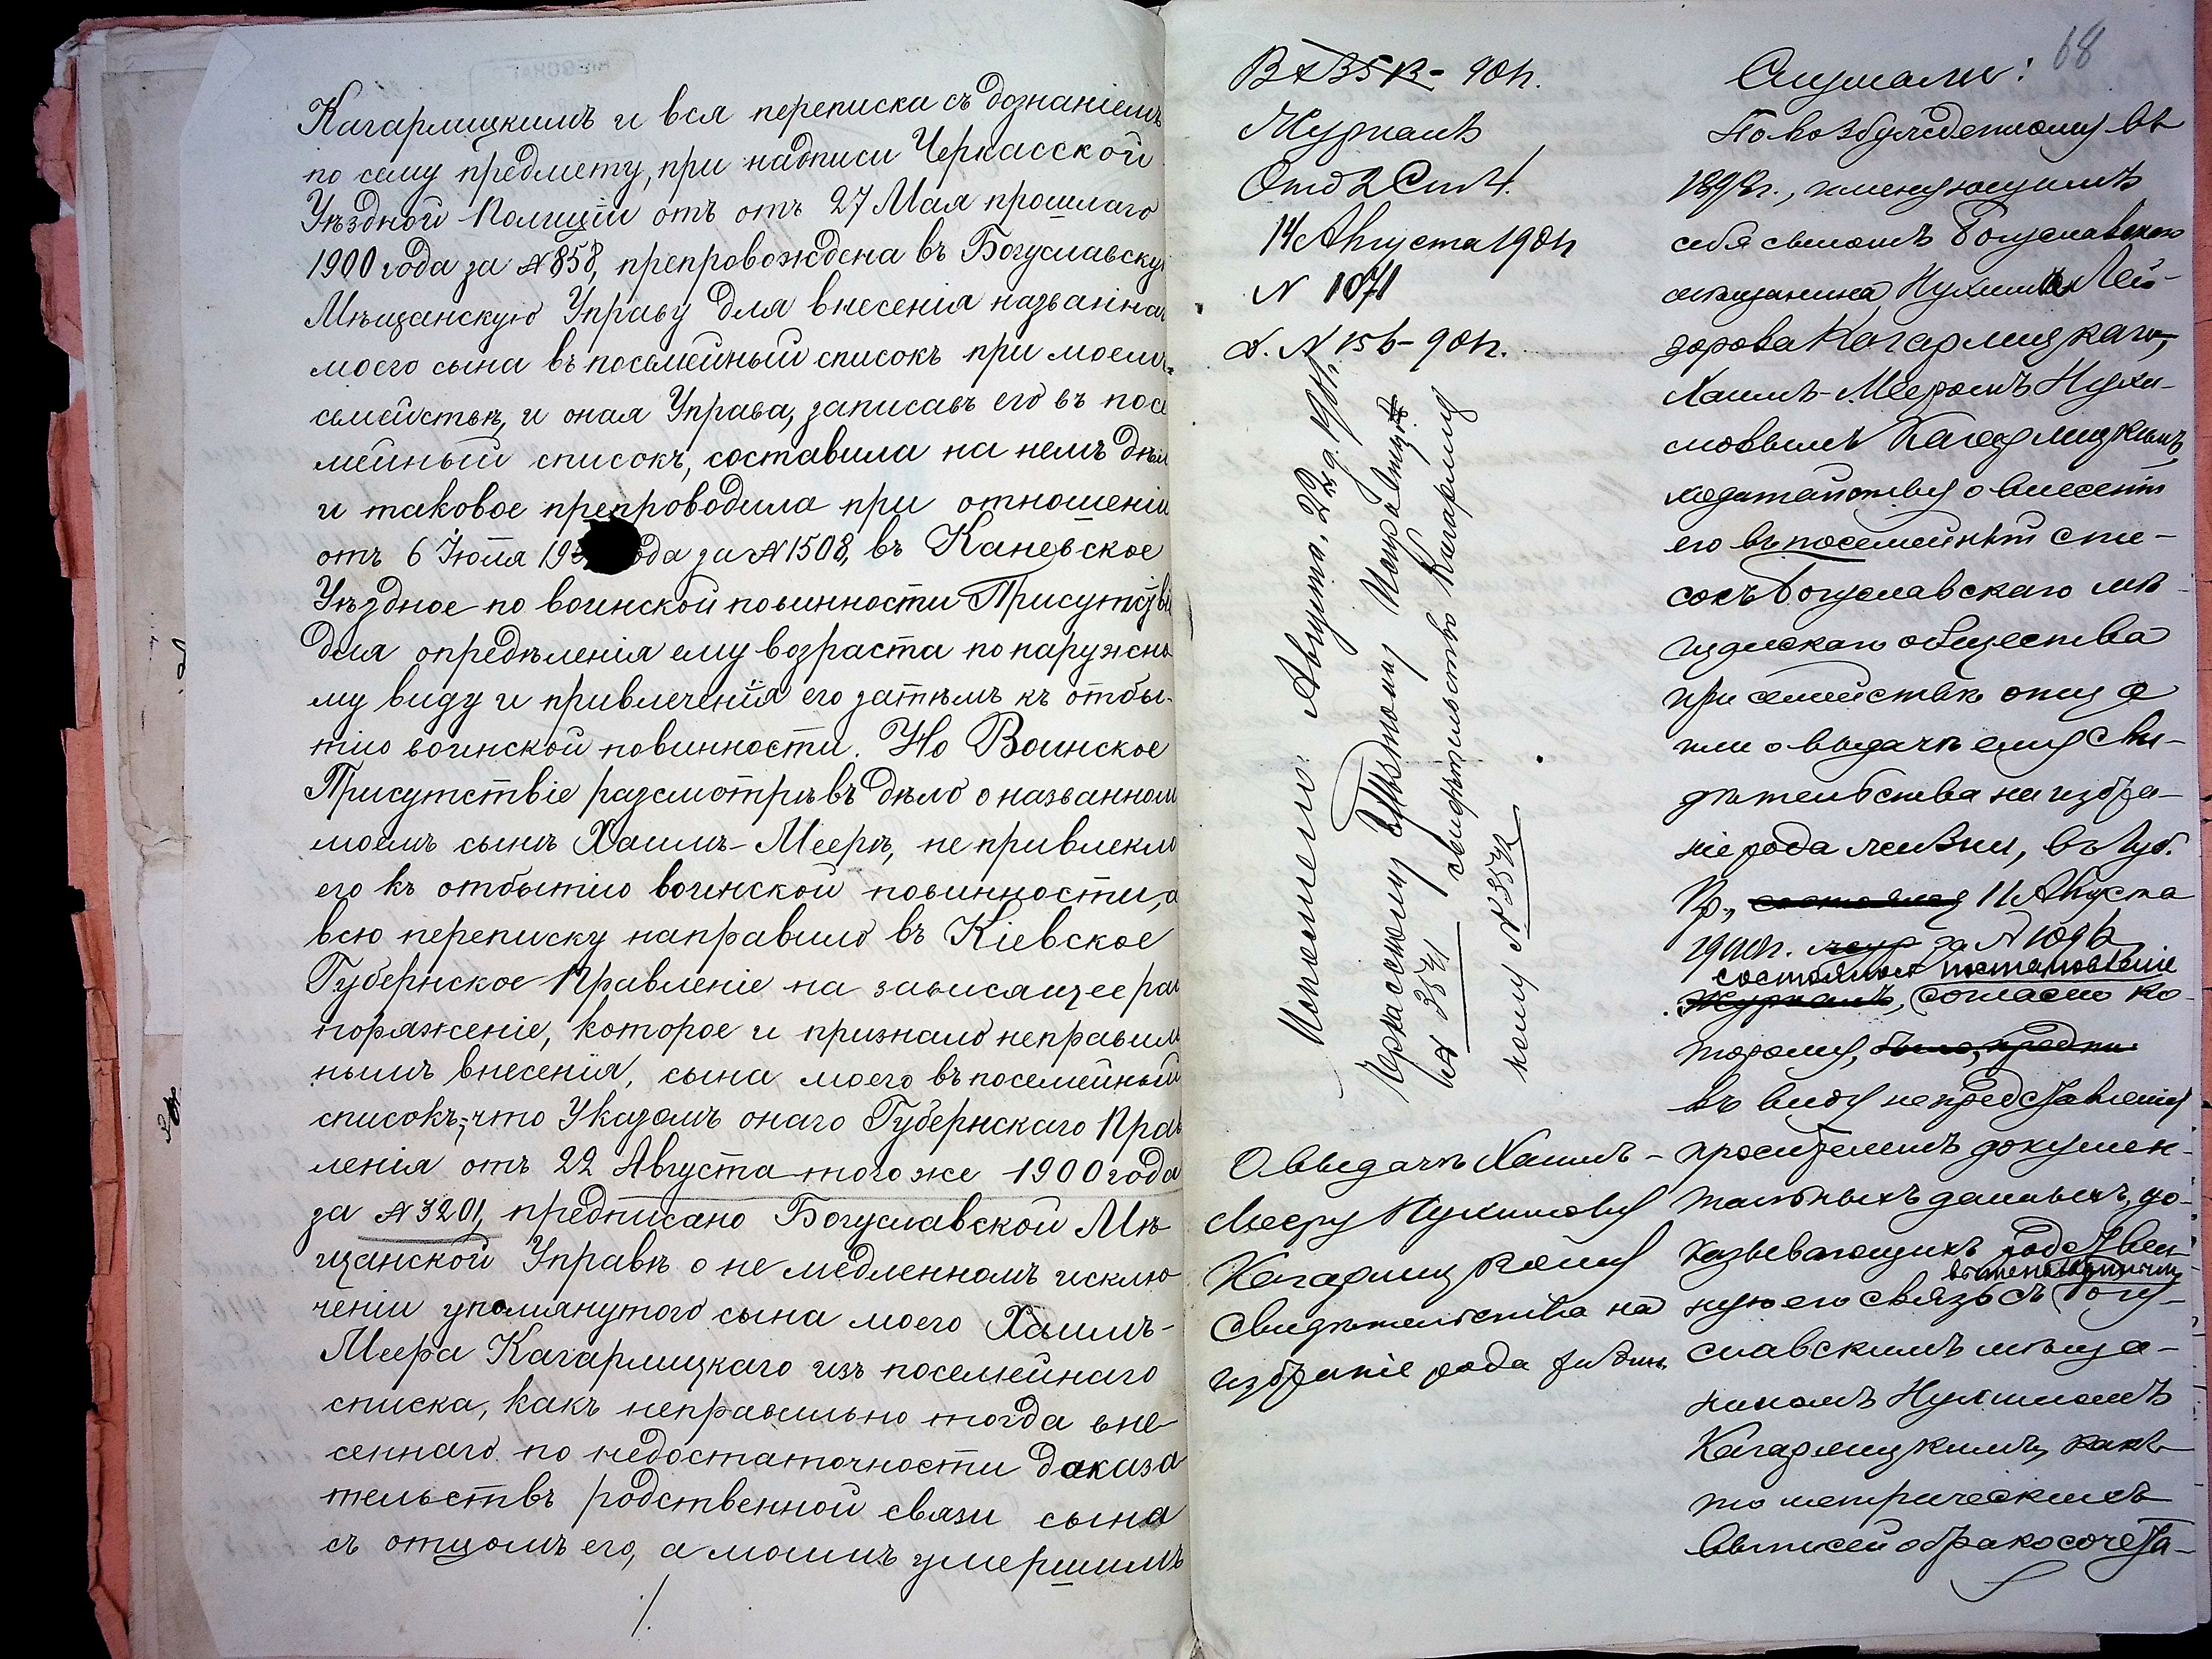 Кагарлицкимъ и вся переписка съ дознаніемъ
по сему предмету, при надписи Черкасской
Уѣздной Полиціи отъ отъ 27 Мая прошлаго
1900 года за № 858, препровождена въ Богуславску
Мѣщанскую Управу для внесенія названна
моего сына въ посемейный списокъ при моемъ
семействѣ, и оная Управа, записавъ его въ посе
мейный списокъ, составила на немъ дѣл
и таковое препроводила при отношеніи
отъ 6 Іюля 19 ода за № 1508, въ Каневское
Уѣздное по воинской повинности Присутстві
для опредѣленія ему возраста по наружно
му виду и привлеченія его затѣмъ къ отбы-
тію воинской повинности. Но Воинское
Присутствіе разсмотрѣвъ дѣло о названном
моемъ сынѣ Хаимъ-Меерѣ, не привлекло
его къ отбытію воинской повинности, а
всю переписку направило въ Кіевское
Губернское Правленіе на зависящее рас
поряженіе, которое и признало неправиль
нымъ внесенія, сына моего въ посемейный
списокъ, что Указомъ онаго Губернскаго Прав
ленія отъ 22 Августа того же 1900 года
за № 3201, предписано Богуславской Мѣ
щанской Управѣ о не медленномъ исклю
ченіи упомянутого сына моего Хаимъ-
Меера Кагарлицкаго изъ посемейнаго
списка, какъ неправильно тогда вне
сеннаго по недостаточности доказа
тельствъ родственной связи сына
съ отцомъ его, а моимъ умершимъ
/.
68
90 г.
Журналъ
Отд 2 Ст 4.
14 Августа 1901 г
№ 1071
д. № 156-901 г.
Исполнено: Августа, 22 д. 1901 г.
Черкасскому Уѣздному
за № 3541 свидѣтельство Кагарлиц
кому № 3542
О выдачѣ Хаимъ-
Мееру Нухимову
Кагарлицкому
свидѣтельства на
избраніе рода жизни
Слушали:
По возбужденному въ
1898 г., именующимъ
себя сыномъ Богуславскаго
мѣщанина Нухима Лей-
зорова Кагарлицкаго,
Хаимъ-Мееромъ Нухи-
мовымъ Кагарлицкимъ,
ходатайству о внесеніи
его въ посемейный спи-
сокъ Богуславскаго мѣ
щанскаго общества
при семействѣ отца
или о выдачѣ ему сви-
дѣтельства на избра-
ніе рода жизни, въ Губ.
Пр., состоялся 11 Августа
1900 г. за № 1096
состоялось постановленіе
Журналъ, согласно ко-
торому, было, предпи
въ виду непредставленія
просителемъ докумен-
тальныхъ данныхъ, до-
казывающихъ родствен-
ную его связь съ Богу-
славскимъ мѣща-
ниномъ Нухимомъ
Кагарлицкимъ, какъ
то метрическихъ
выписей о бракосочета-